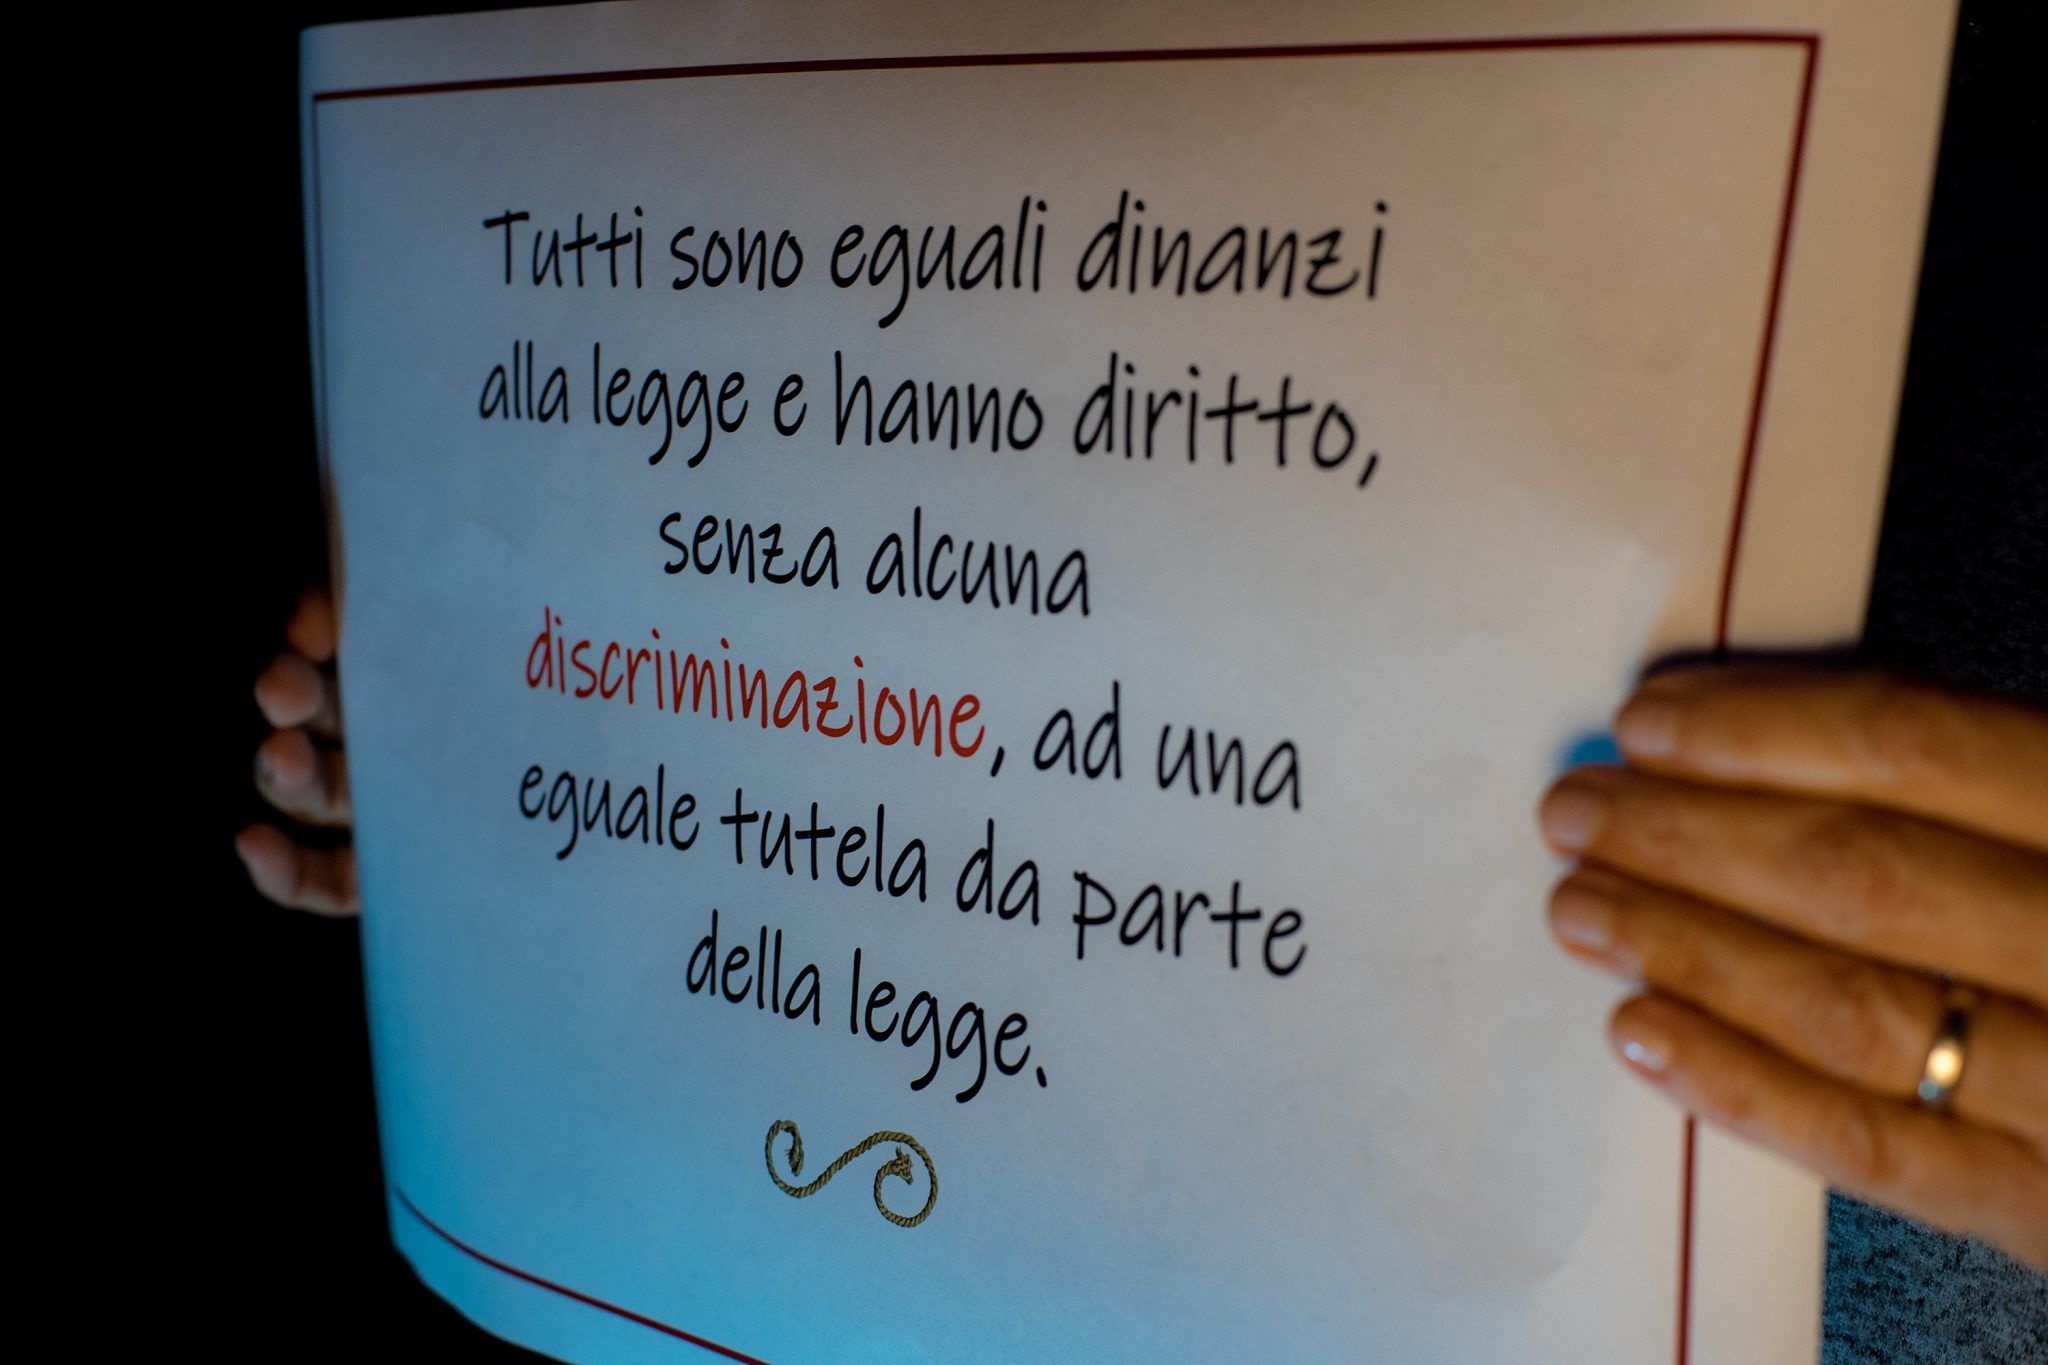 Tutti sono eguali dinanzi
alla legge e hanno diritto,
senza alcuna
discriminazione, ad una
eguale tutela da parte
della legge.